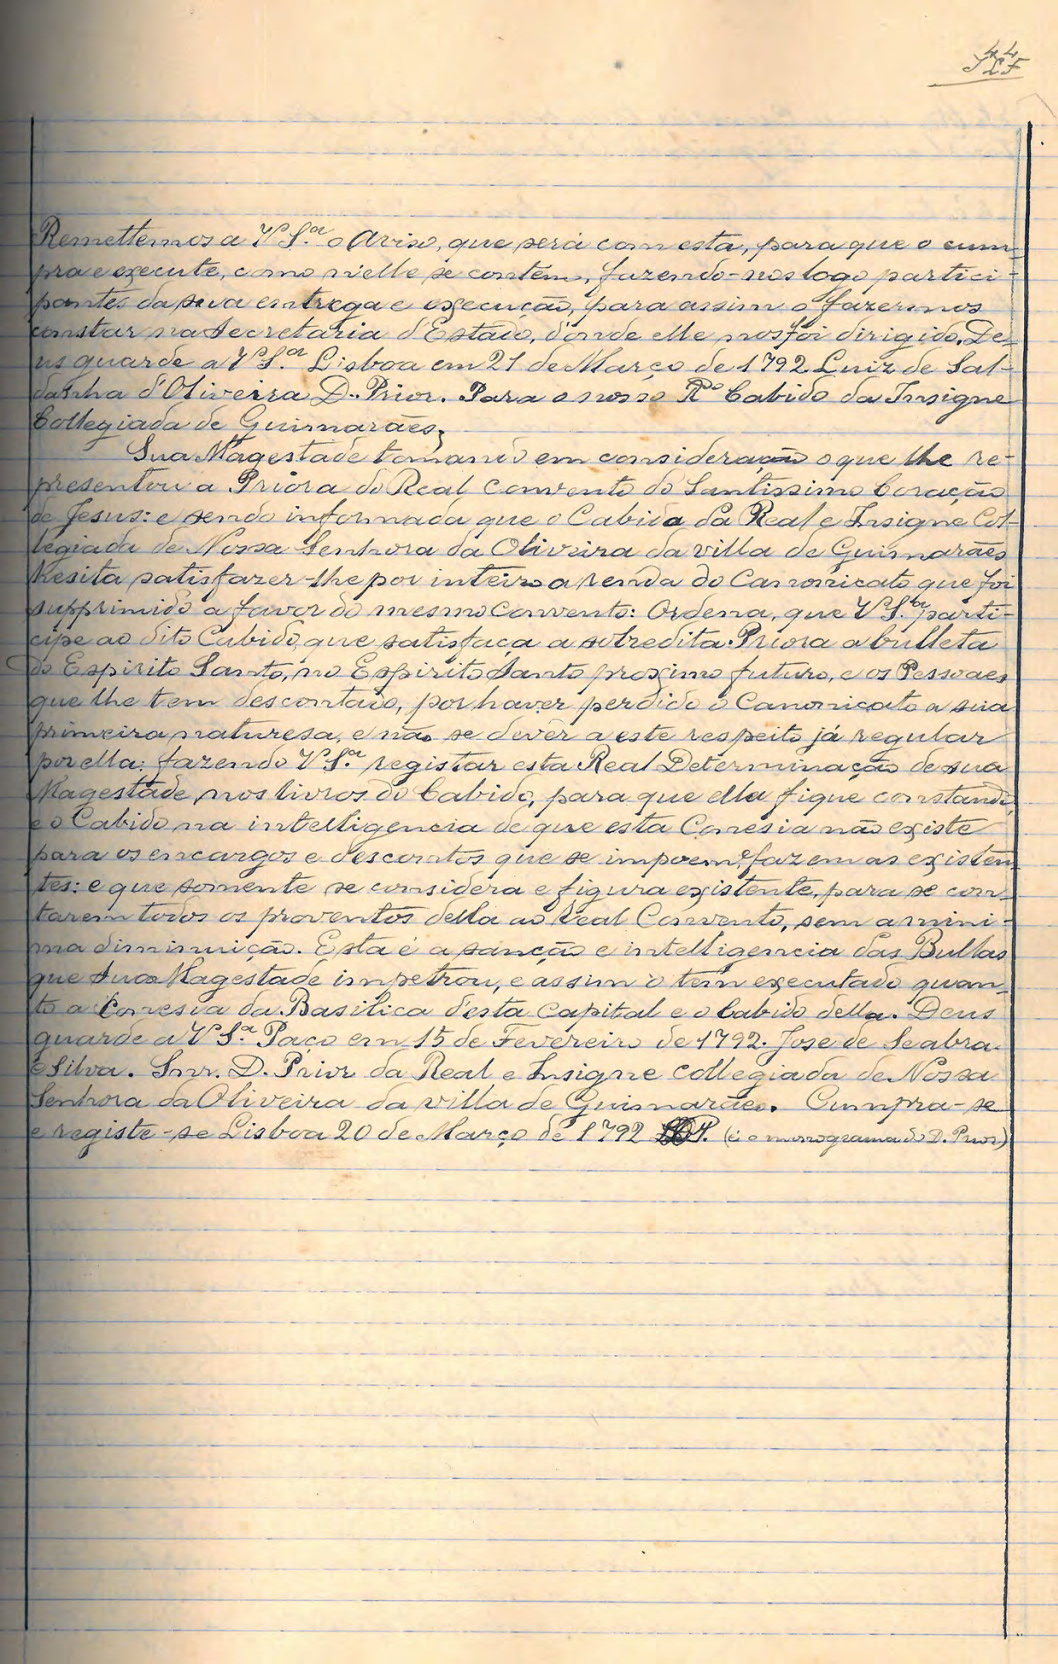 44
Remettemos a V. S.ª o Aviso, que será com esta, para que o cum-
pra e execute, como n'elle se contém, fazendo-nos logo partici-
pantes da sua entrega e execução, para assim o fazermos
constar na Secretaria d'Estado, d'onde elle nos foi dirigido. De-
us guarde a V. S.ª Lisboa em 21 de Março de 1792. Luiz de Sal-
danha d'Oliveira D. Prior. Para o nosso R.do Cabido da Insigne
Collegiada de Guimarães;
Sua Magestade tomando em consideração o que lhe re-
presentou a Priora do Real Convento do Santissimo Coração
de Jesus: e sendo informada que o Cabido da Real e Insigne Col-
legiada de Nossa Senhora da Oliveira da villa de Guimarães
hesita satisfazer-lhe por inteiro a renda do Canonicato que foi
supprimido a favor do mesmo Convento: Ordena, que V. S.ª parti-
cipe ao dito Cabido, que satisfaça a sobredita Priora a bulleta
do Espirito Santo, no Espirito Santo proximo futuro, e os Pessoaes
que lhe tem descontado, por haver perdido o Canonicato a sua
primeira naturesa, e não se dever a este respeito já regular
por ella: fazendo V. S.ª registar esta Real Determinação de sua
Magestade, nos livros do Cabido, para que ella fique constando,
e o Cabido na intelligencia de que esta Conesia não existe
para os encargos e descontos que se impoem e fazem as existen-
tes: e que somente se considera e figura existente, para se con-
tarem todos os proventos della ao Real Convento, sem a mini-
ma diminuição. Esta é a sanção e intelligencia das Bullas
que Sua Magestade impetrou, e assim o tem executado quan-
to a Conesia da Basilica d'esta Capital e o Cabido della. Deus
guarde a V. S.ª Paço em 15 de Fevereiro de 1792. José de Seabra
e Silva. Snr. D. Prior da Real e Insigne Collegiada de Nossa
Senhora da Oliveira da villa de Guimarães. Cumpra-se
e registe-se Lisboa 20 de Março de 1792 DP. (é o monograma do D. Prior)